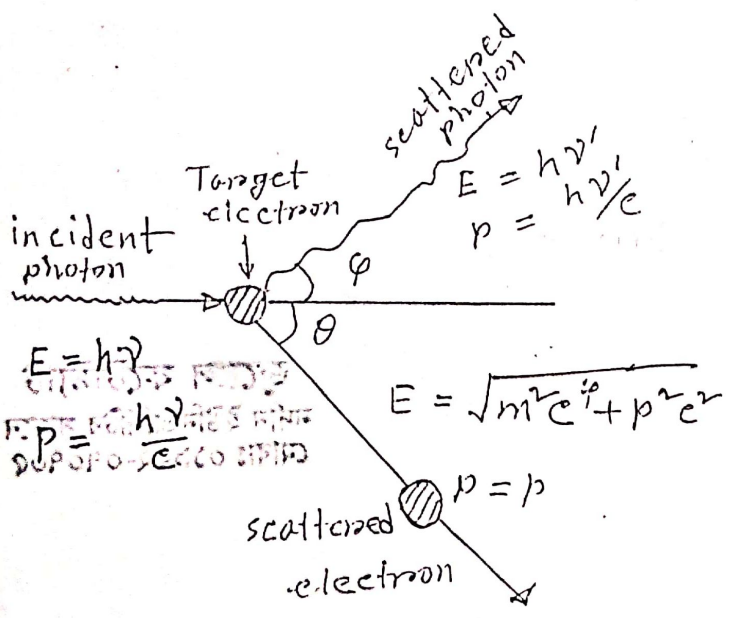 scattered
photon
E = hν′
p = hν′/c
Target
electron
incident
photon
φ
θ
E = hν
P = hν/c
E = √m²c⁴ + p²c²
p = p
scattered
electron